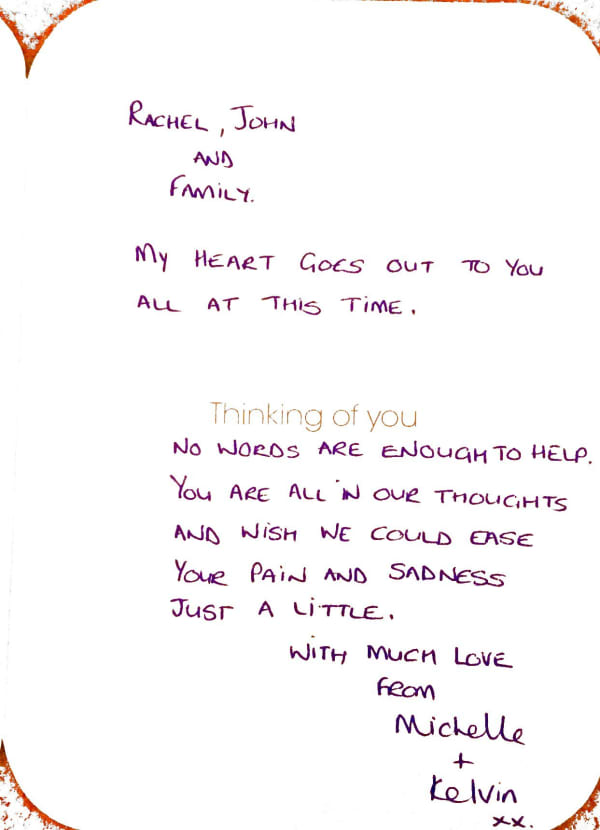 RACHEL, JOHN
AND
FAMILY.
My HEART GOES OUT TO YOU
ALL AT THIS TIME.
Thinking of you
NO WORDS ARE ENOUGH TO HELP.
YOU ARE ALL IN OUR THOUGHTS
AND WISH WE COULD EASE
YOUR PAIN AND SADNESS
JUST A LITTLE.
WITH MUCH LOVE
FROM
Michelle
+
Kelvin
xx.